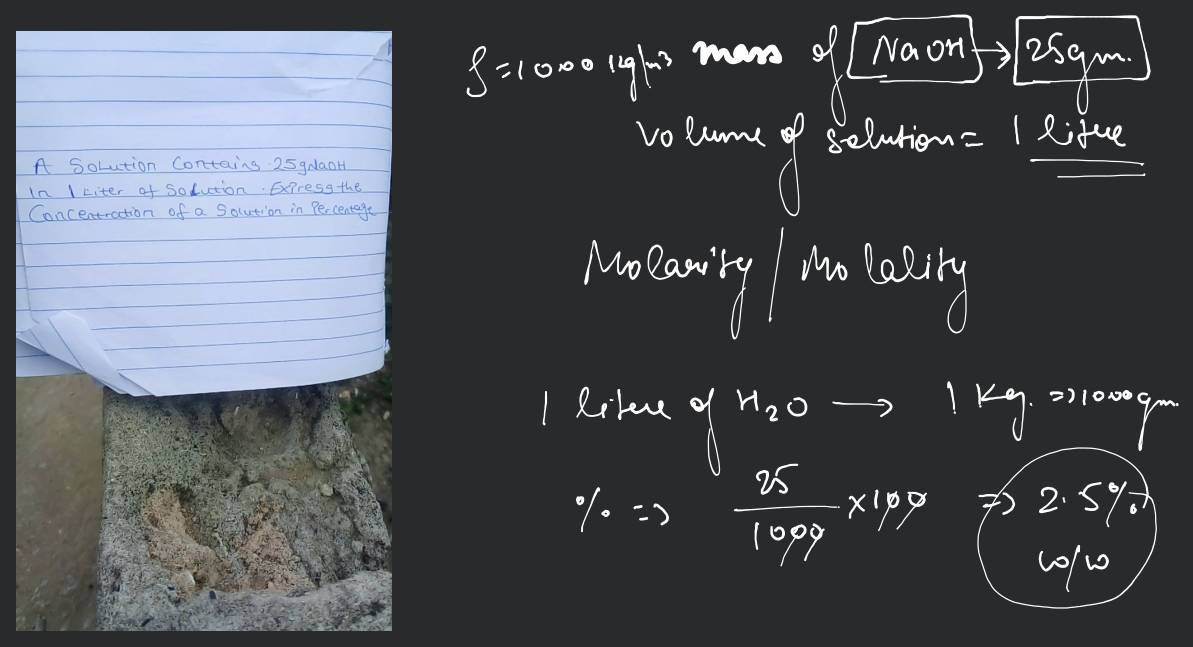 A Solution Contains 25gNaOH
In 1 Liter of Solution. Express the
Concentration of a Solution in Percentage
ρ=1000 kg/m³ mass of NaOH → 25gm.
Volume of solution = 1 litre
Molarity / Molality
1 litere of H₂O → 1 Kg. => 1000gm.
% => 25/1000 × 100 => 2.5%
w/w